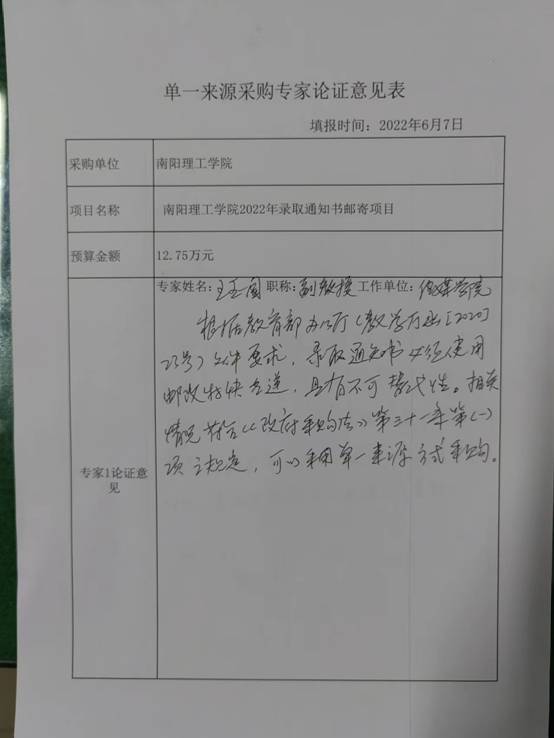 单一来源采购专家论证意见表
填报时间：2022年6月7日
采购单位 南阳理工学院
项目名称 南阳理工学院2022年录取通知书邮寄项目
预算金额 12.75万元
专家姓名：王玉阁 职称：副教授 工作单位：传媒学院
根据教育部办公厅（教学厅函[2020]
23号）文件要求，录取通知书必须使用
邮政特快专递，具有不可替代性。相关
情况符合《政府采购法》第三十一条第（一）
项之规定，可以采用单一来源方式采购。
专家1论证意
见